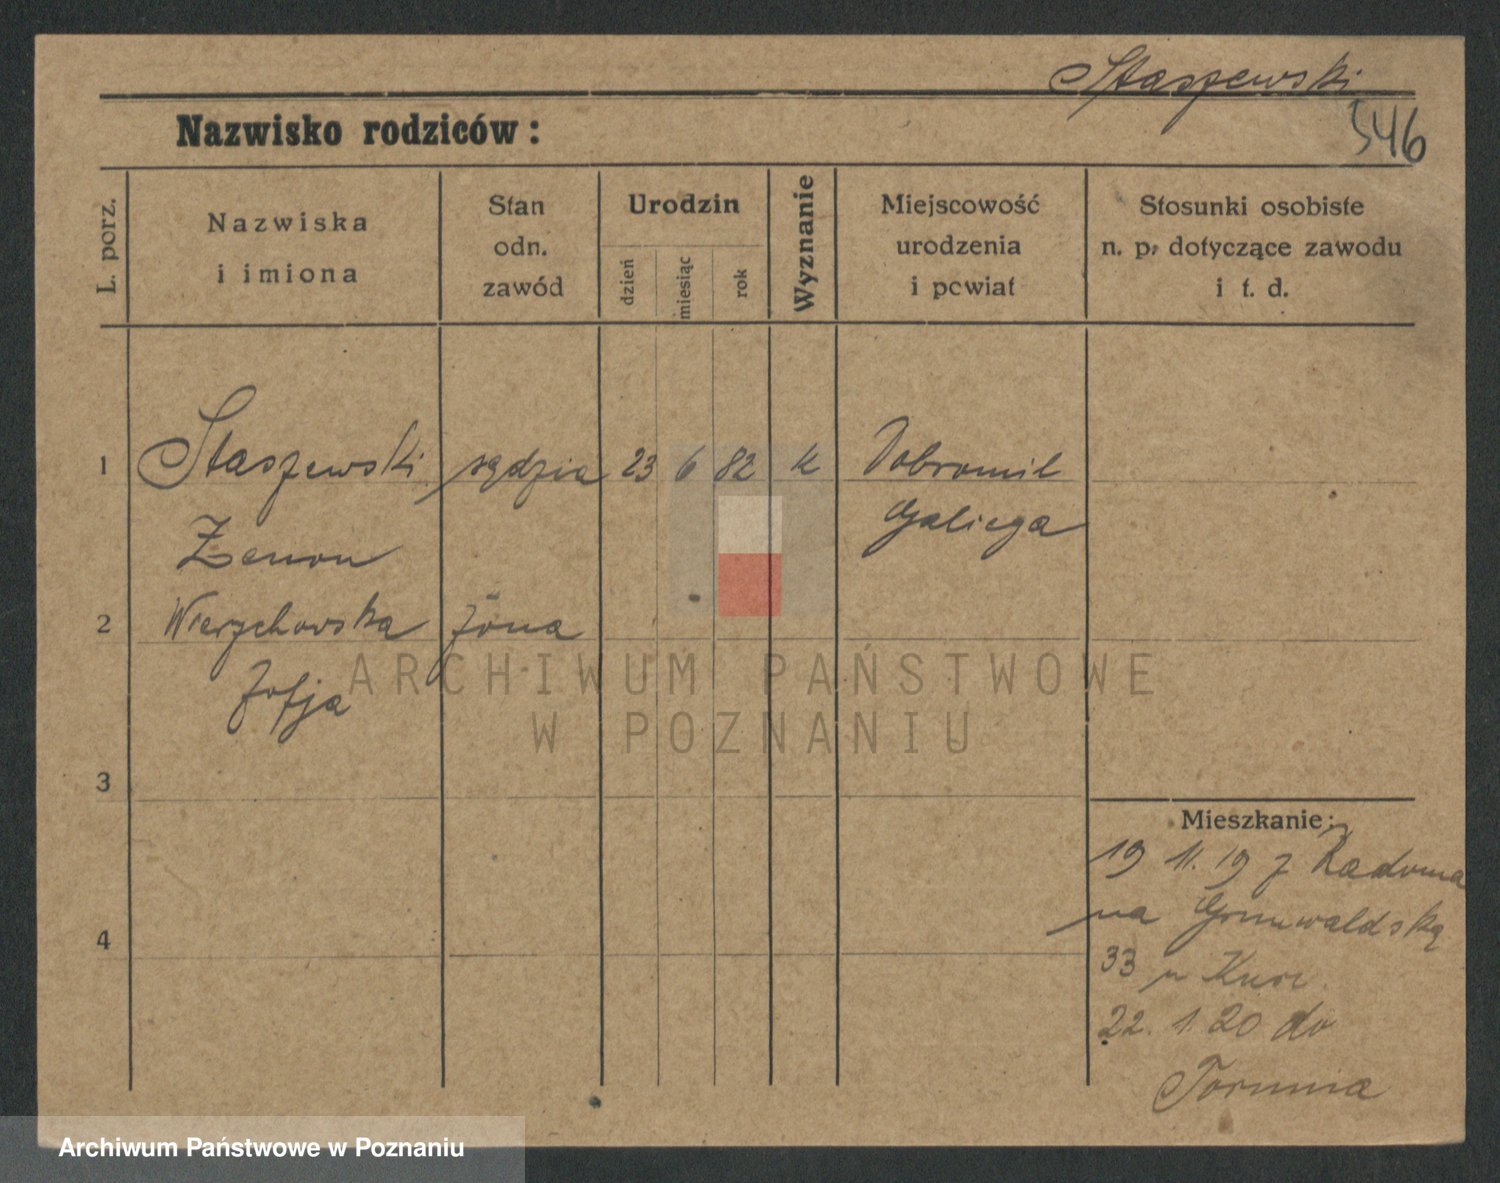 Staszewski
546
Nazwisko rodziców:
L. porz.
Nazwiska
i imiona
Stan
odn.
zawód
Urodzin
dzień
miesiąc
rok
Wyznanie
Miejscowość
urodzenia
i powiat
Stosunki osobiste
n. p. dotyczące zawodu
i t. d.
1 Staszewski sędzia 23 6 82 k Dobromil
Zenon Galicya
2 Wierzchowska żona
Zofja
ARCHIWUM PAŃSTWOWE
W POZNANIU
3
Mieszkanie:
19 11. 19 z Radoma
na Grunwaldską
4
33 u
22. 1. 20 do
Torunia
Archiwum Państwowe w Poznaniu